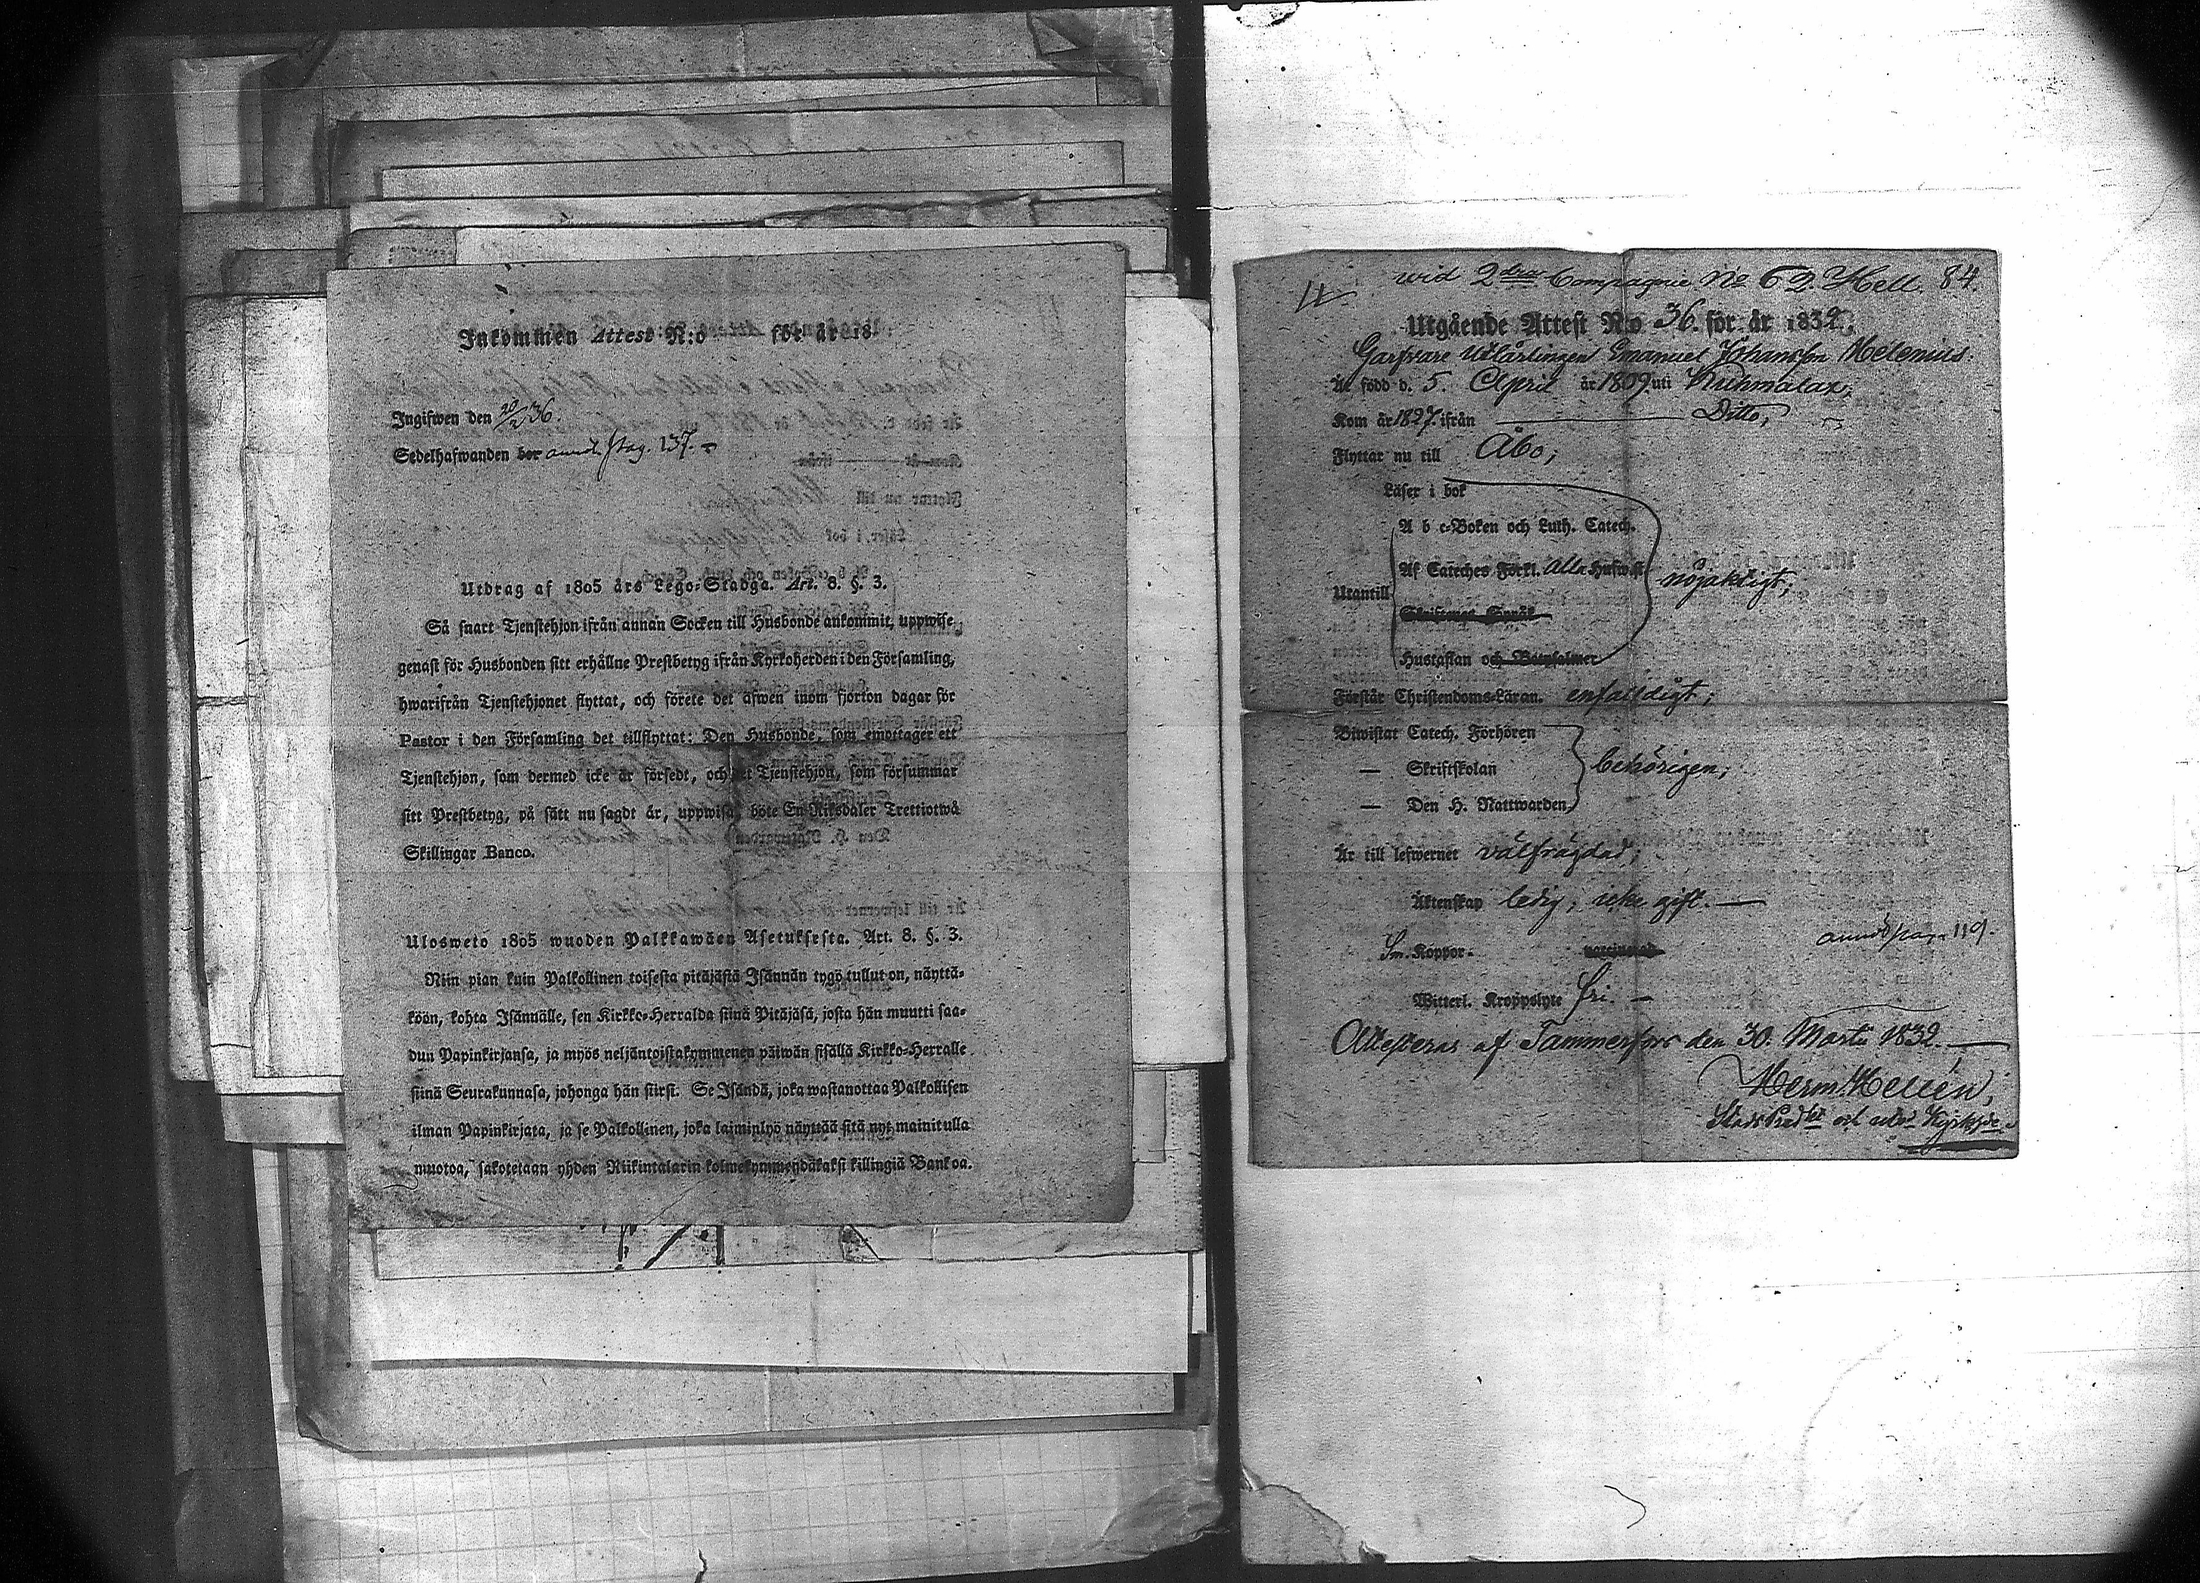 Inkommen Attest N:o för år 18
Ingifwen den 20/2 36.
Sedelhafwanden bor annot. pag. 137. -
Utdrag af 1805 års Lego-Stadga. Art. 8. §. 3.
Så snart Tjenstehjon ifrån annan Socken till Husbonde ankommit, uppwise
genast för Husbonden sitt erhållne Prestbetyg ifrån Kyrkoherden i den Församling,
hwarifrån Tjenstehjonet flyttat, och förete det äfwen inom fjorton dagar för
Pastor i den Församling det tillflyttat: Den Husbonde, som emottager ett
Tjenstehjon, som dermed icke är försedt, och det Tjenstehjon, som försummar
sitt Prestbetyg, på sätt nu sagdt är, uppwisa, böte En Riksdaler Trettiotwå
Skillingar Banco.
Ulosweto 1805 wuoden Palkkawäen Asetuksesta. Art. 8. §. 3.
Niin pian kuin Palkollinen toisesta pitäjästä Isännän tygö tullut on, näyttä-
köön, kohta Isännälle, sen Kirkko-Herralda siinä Pitäjäsä, josta hän muutti saa-
dun Papinkirjansa, ja myös neljäntoistakymmenen päiwän sisällä Kirkko-Herralle
siinä Seurakunnasa, johonga hän siirsi. Se Isändä, joka wastanottaa Palkollisen
ilman Papinkirjata, ja se Palkollinen, joka laiminlyö näyttää sitä nyt mainitulla
muotoa, sakotetaan yhden Riikintalarin kolmekymmendäkaksi killingiä Bankoa.
wid 2dra Compagnie No 62. Hell. 84.
Utgående Attest N:o 36. för år 1832.
Garfvare Utlärlingen Emanuel Johansson Melenius
Är född d. 5. April år 1809. uti Kuhmalax,
Kom år 1827. ifrån Ditto,
Flyttar nu till Åbo,
Läser i bok
A b c-Boken och Luth. Catech.
Af Cateches Förkl. Alla Hufwst
nöjaktigt;
Utantill
Skriftenes Språk
Hustaflan och Botpsalmer
Förstår Christendoms-Läran. enfaldigt;
Biwistat Catech. Förhören
— Skriftskolan
behörigen;
— Den H. Nattwarden,
Är till lefwernet välfrägdad;
Äktenskap ledig, icke gift. —
annot pag. 119.
Sm. Koppor.
Witterl. Kroppslyte fri. —
Attesteras af Tammerfors den 30. Martii 1832. —
Herm. Hellén,